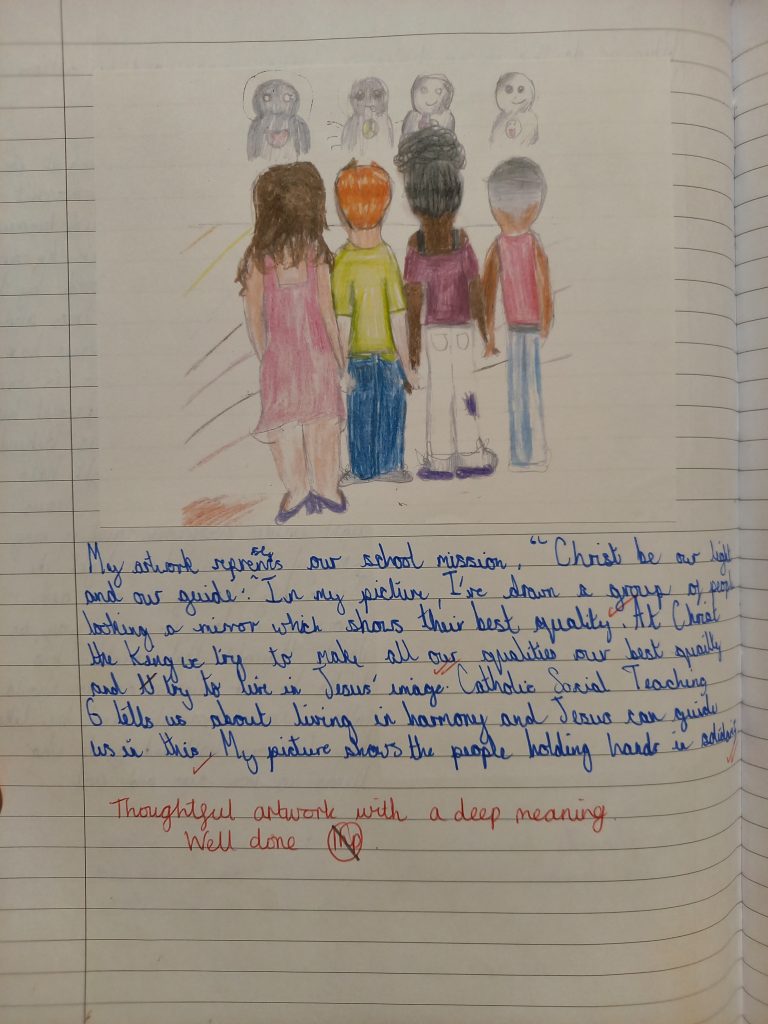 My artwork reprensents our school mission, "Christ be our light
and our guide". In my picture, I've drawn a group of people
looking a mirror which shows their best quality. At Christ
the King we try to make all our qualities our best quailty
and try to live in Jesus' image. Catholic Social Teaching
6 tells us about living in harmony and Jesus can guide
us in this. My picture shows the people holding hands in solidarity
Thoughtful artwork with a deep meaning.
Well done